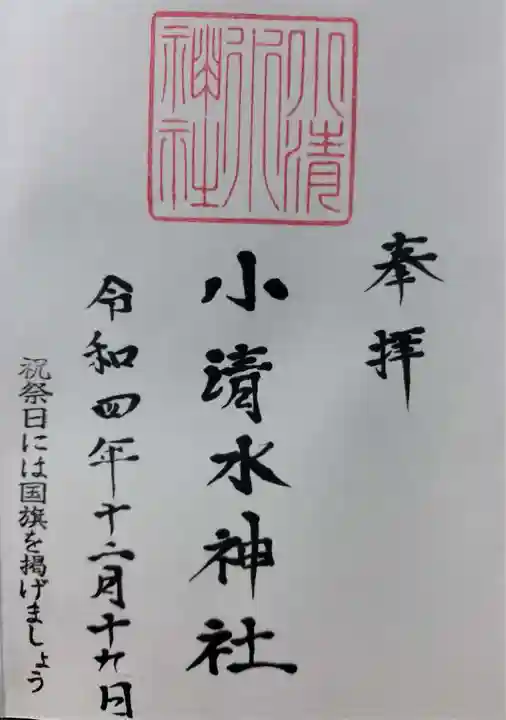 小清水神社
奉拝
小清水神社
令和四年十二月十九日
祝祭日には国旗を掲げましょう